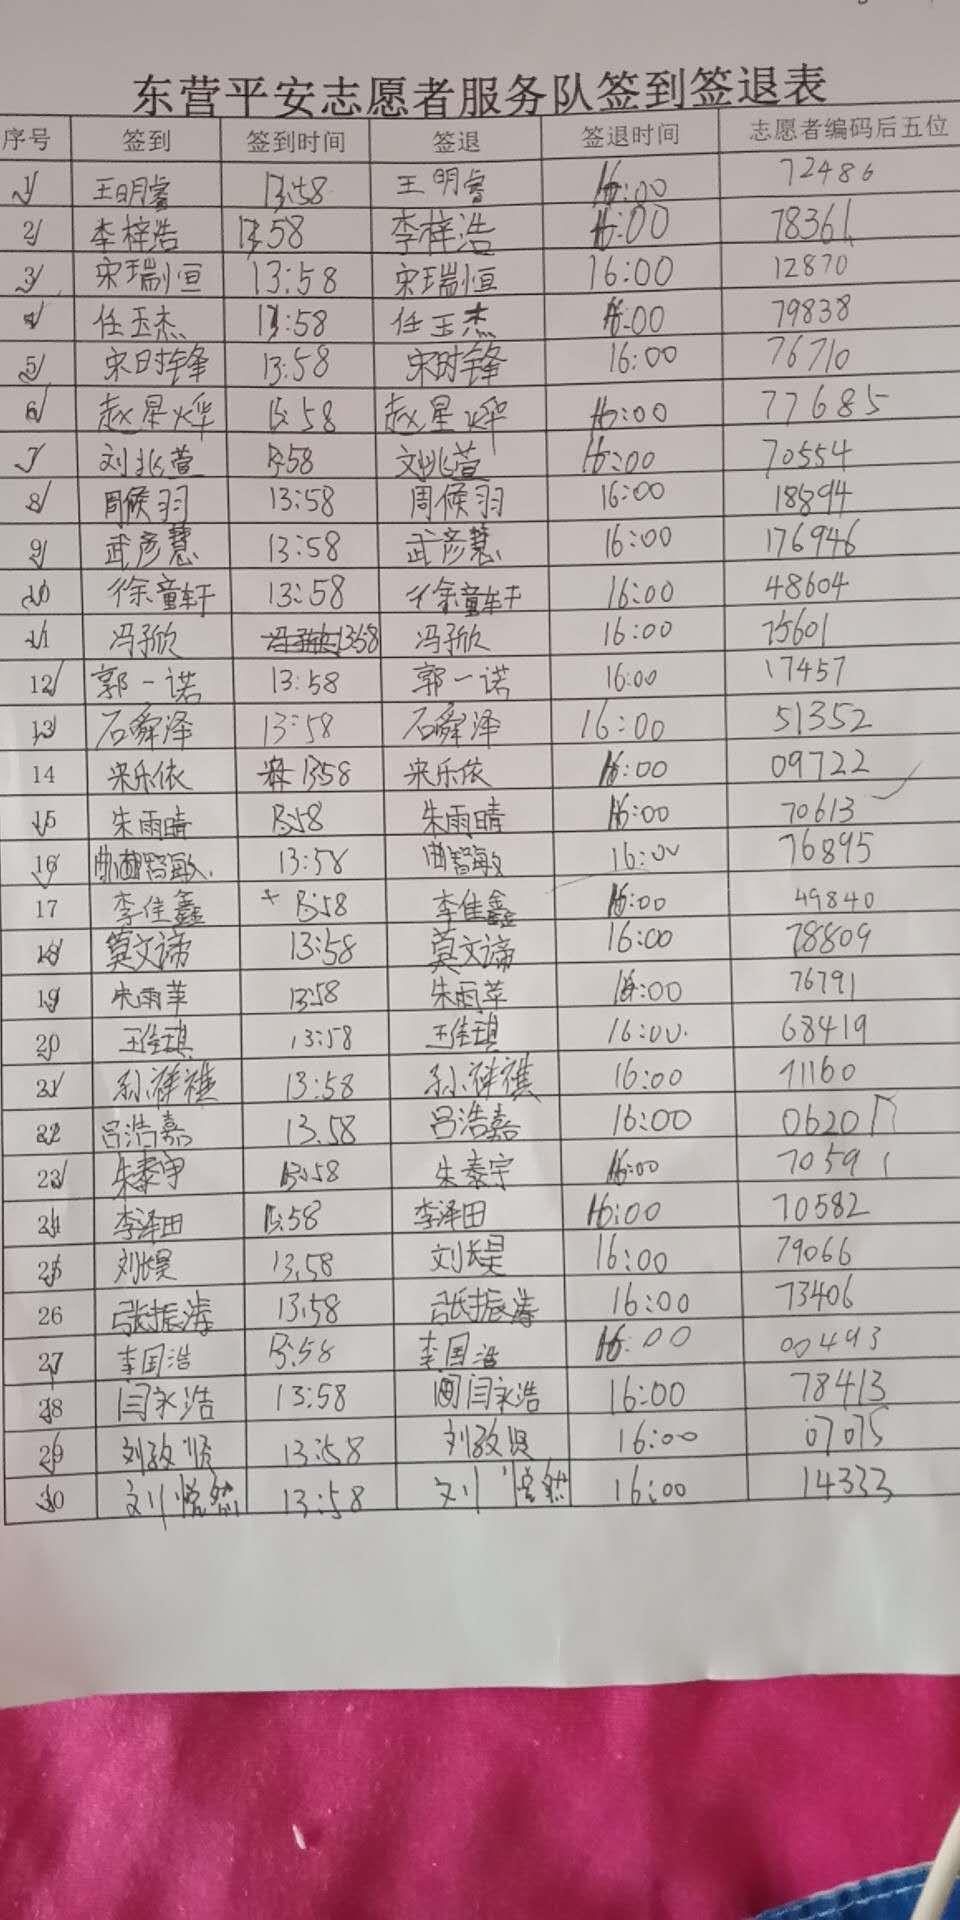 东营平安志愿者服务队签到签退表
序号 签到 签到时间 签退 签退时间 志愿者编码后五位
1 王明睿 13:58 王明睿 16:00 72486
2 李梓浩 13:58 李梓浩 16:00 78361
3 宋瑞恒 13:58 宋瑞恒 16:00 12870
4 任玉杰 13:58 任玉杰 16:00 79838
5 宋时锋 13:58 宋时锋 16:00 76710
6 赵星烨 13:58 赵星烨 16:00 77685
7 刘兆萱 13:58 刘兆萱 16:00 70554
8 周候羽 13:58 周候羽 16:00 18894
9 武彦慧 13:58 武彦慧 16:00 176946
10 徐童轩 13:58 徐童轩 16:00 48604
11 冯子欣 13:58 冯子欣 16:00 75601
12 郭一诺 13:58 郭一诺 16:00 17457
13 石舜泽 13:58 石舜泽 16:00 51352
14 宋乐依 13:58 宋乐依 16:00 09722
15 朱雨晴 13:58 朱雨晴 16:00 70613
16 曲智敏 13:58 曲智敏 16:00 76895
17 李佳鑫 13:58 李佳鑫 16:00 49840
18 莫文谛 13:58 莫文谛 16:00 78809
19 朱雨苹 13:58 朱雨苹 16:00 76791
20 王佳琪 13:58 王佳琪 16:00 68419
21 孙祥禚 13:58 孙祥禚 16:00 71160
22 吕浩嘉 13.58 吕浩嘉 16:00 0620
23 朱泰宇 13:58 朱泰宇 16:00 70591
24 李泽田 13:58 李泽田 16:00 70582
25 刘长昊 13.58 刘长昊 16:00 79066
26 张振涛 13:58 张振涛 16:00 73406
27 李国浩 13:58 李国浩 16:00 00493
28 闫永浩 13:58 闫永浩 16:00 78413
29 刘孜贤 13:58 刘孜贤 16:00 07075
30 刘悦然 13:58 刘悦然 16:00 14333